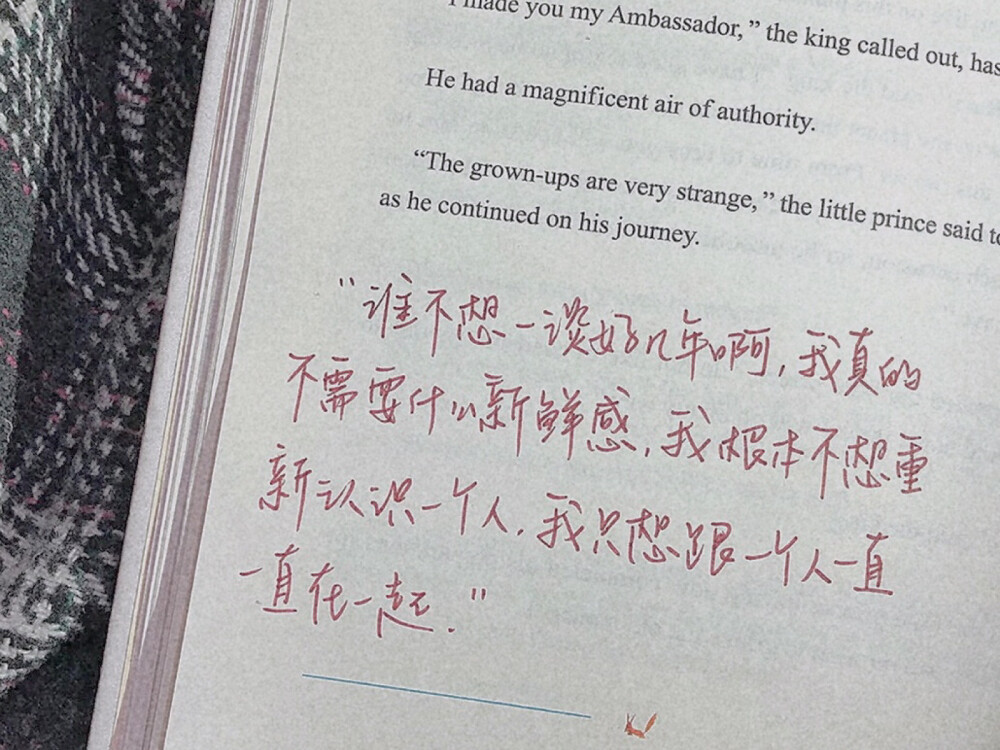 I made you my Ambassador,” the king called out, has
He had a magnificent air of authority.
“The grown-ups are very strange,” the little prince said to
as he continued on his journey.
“谁不想一谈好几年啊,我真的
不需要什么新鲜感,我根本不想重
新认识一个人,我只想跟一个人一直
一直在一起.”